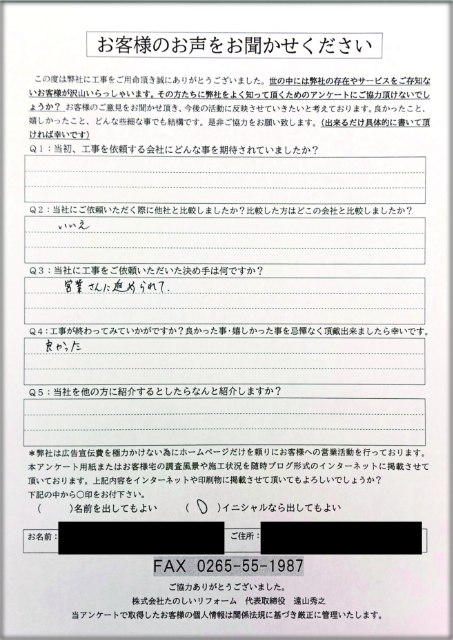 お客様のお声をお聞かせください
この度は弊社に工事をご用命頂き誠にありがとうございました。世の中には弊社の存在やサービスをご存知な
いお客様が沢山いらっしゃいます。その方たちに弊社をよく知って頂くためのアンケートにご協力頂けないでし
ょうか？ お客様のご意見をお聞かせ頂き、今後の活動に反映させていきたいと考えております。良かったこと、
嬉しかったこと、どんな些細な事でも結構です。是非ご協力をお願い致します。（出来るだけ具体的に書いて頂
ければ幸いです）
Q１：当初、工事を依頼する会社にどんな事を期待されていましたか？
Q２：当社にご依頼いただく際に他社と比較しましたか？比較した方はどこの会社と比較しましたか？
いいえ
Q３：当社に工事をご依頼いただいた決め手は何ですか？
営業さんに進められて.
Q４：工事が終わってみていかがですか？良かった事・嬉しかった事を忌憚なく頂戴出来ましたら幸いです。
良かった
Q５：当社を他の方に紹介するとしたらなんと紹介しますか？
＊弊社は広告宣伝費を極力かけない為にホームページだけを頼りにお客様への営業活動を行っております。
本アンケート用紙またはお客様宅の調査風景や施工状況を随時ブログ形式のインターネットに掲載させて
頂いております。上記内容をインターネットや印刷物に掲載させて頂いてもよろしいでしょうか？
下記の中から〇印をお付下さい。
（　　）名前を出してもよい　　（ 〇 ）イニシャルなら出してもよい
お名前：　　ご住所：
FAX 0265-55-1987
ご協力ありがとうございました。
株式会社たのしいリフォーム　代表取締役　遠山秀之
当アンケートで取得したお客様の個人情報は関係法規に基づき厳正に管理いたします。